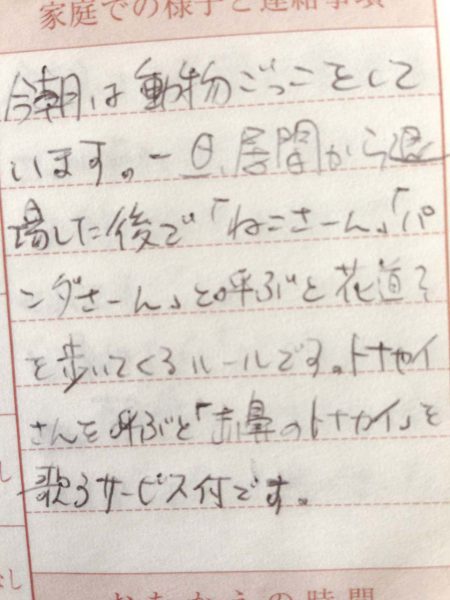 家庭での様子と連絡事項
今朝は動物ごっこをして
います。一旦、居間から退
場した後で「ねこさーん」「パ
ンダさーん」と呼ぶと花道
を歩いてくるルールです。トナカイ
さんを呼ぶと「赤鼻のトナカイ」を
歌うサービス付です。
の時間